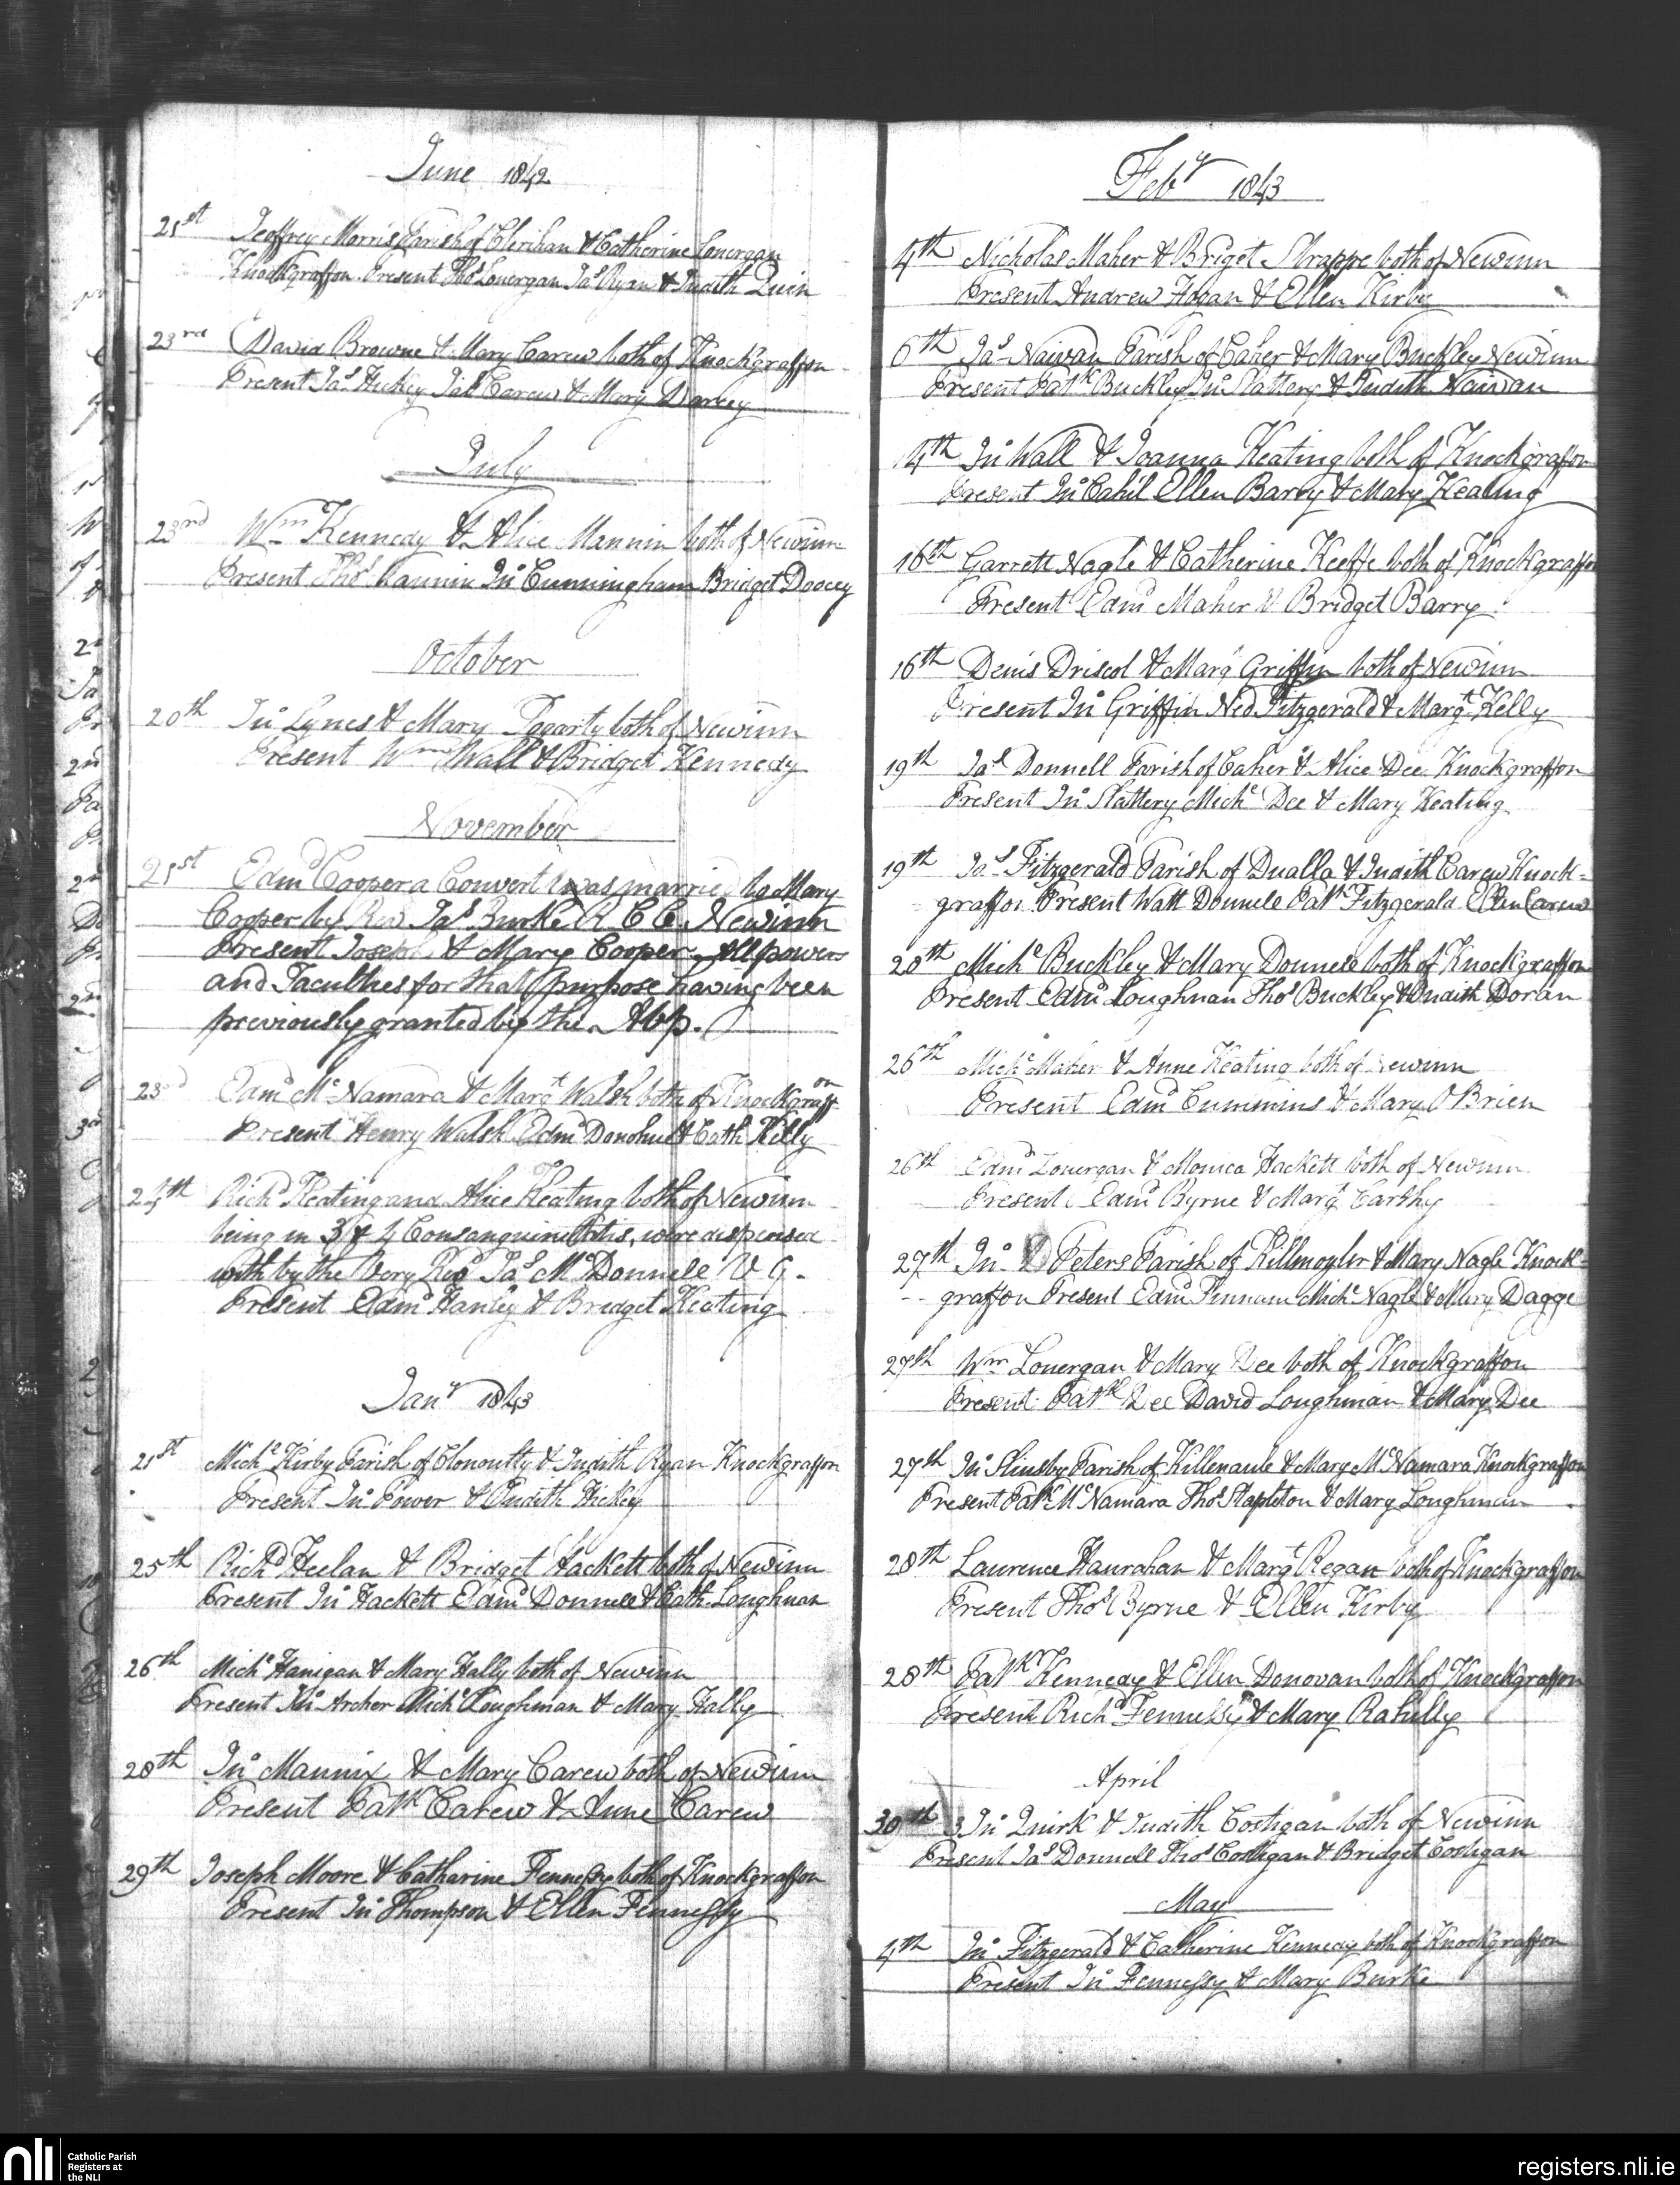 June 1842
21st Jeoffrey Morris Parish of Clerihan & Catherine Lonergan
Knockgraffon Present Thos Lonergan Jas Ryan & Judith Quin
23rd David Browne & Mary Carew both of Knockgraffon
Present Jas Hickey Jas Carew & Mary Darcey
July
23rd Wm Kennedy & Alice Mannin both of Newinn
Present Thos Mannin Jno Cunningham Bridget Doocey
October
20th Jno Lynes & Mary Fogarty both of Newinn
Present Wm Wall & Bridget Kennedy
November
21st Edmd Cooper a Convert was married to Mary
Cooper by Rev Jas Burke R C C Newinn
Present Joseph & Mary Cooper. All powers
and Faculties for that purpose having been
previously granted by the Abp.
23rd Edmd McNamara & Margt Walsh both of Knockgraffon
Present Henry Walsh Edmd Donohue & Cath Kelly
24th Richd Keating and Alice Keating both of Newinn
being in 3 & 4 Consanguinitatis, were dispensed
with by the Very Revd Jas McDonnell V G.
Present Edmd Hanley & Bridget Keating
Jany 1843
21st Michl Kirby Parish of Clonoulty & Judith Ryan Knockgraffon
Present Jno Power & Judith Hickey
25th Richd Heelan & Bridget Hackett both of Newinn
Present Jno Hackett Edmd Donnell & Cath Loughnan
26th Michl Hanigan & Mary Hally both of Newinn
Present Jno Archer Michl Loughman & Mary Hally
28th Jno Mannix & Mary Carew both of Newinn
Present Patk Carew & Anne Carew
29th Joseph Moore & Catharine Fennessy both of Knockgraffon
Present Jno Thompson & Ellen Fennessy
Feby 1843
4th Nicholas Maher & Briget Strappe both of Newinn
Present Andrew Hogan & Ellen Kirby
6th Jas Naivan Parish of Caher & Mary Buckley Newinn
Present Patk Buckley Jno Slattery & Judith Naivan
14th Jno Wall & Joanna Keating both of Knockgraffon
Present Jno Cahil Ellen Barry & Mary Keating
16th Garrett Nagle & Catherine Keeffe both of Knockgraffon
Present Edmd Maher & Bridget Barry
16th Denis Driscol & Margt Griffin both of Newinn
Present Jno Griffin Ned Fitzgerald & Margt Kelly
19th Jas Donnell Parish of Caher & Alice Dee Knockgraffon
Present Jno Slattery Michl Dee & Mary Keating
19th Jas Fitzgerald Parish of Dualla & Judith Carew Knock-
graffon Present Watt Donnell Patk Fitzgerald Ellen Carew
20th Michl Buckley & Mary Donnell both of Knockgraffon
Present Edmd Loughnan Thos Buckley & Judith Doran
26th Michl Maher & Anne Keating both of Newinn
Present Edmd Cummins & Mary O Brien
26th Edmd Lonergan & Monica Hackett both of Newinn
Present Edmd Byrne & Margt Carthy
27th Jno Peters Parish of Killmoyler & Mary Nagle Knock-
graffon Present Edmd Finnane Michl Nagle & Mary Dagge
27th Wm Lonergan & Mary Dee both of Knockgraffon
Present Patk Dee David Loughman & Mary Dee
27th Jno Slinsby Parish of Killenaule & Mary McNamara Knockgraffon
Present Patk McNamara Thos Stapleton & Mary Loughman
28th Laurence Hanrahan & Margt Regan both of Knockgraffon
Present Thos Byrne & Ellen Kirby
28th Patk Kennedy & Ellen Donovan both of Knockgraffon
Present Richd Fennessy & Mary Rahilly
April
30th Jno Quirk & Judith Costigan both of Newinn
Present Jas Donnell Thos Costigan & Bridget Costigan
May
4th Jno Fitzgerald & Catherine Kennedy both of Knockgraffon
Present Jno Fennessy & Mary Burke
nli Catholic Parish
Registers at
the NLI
registers.nli.ie